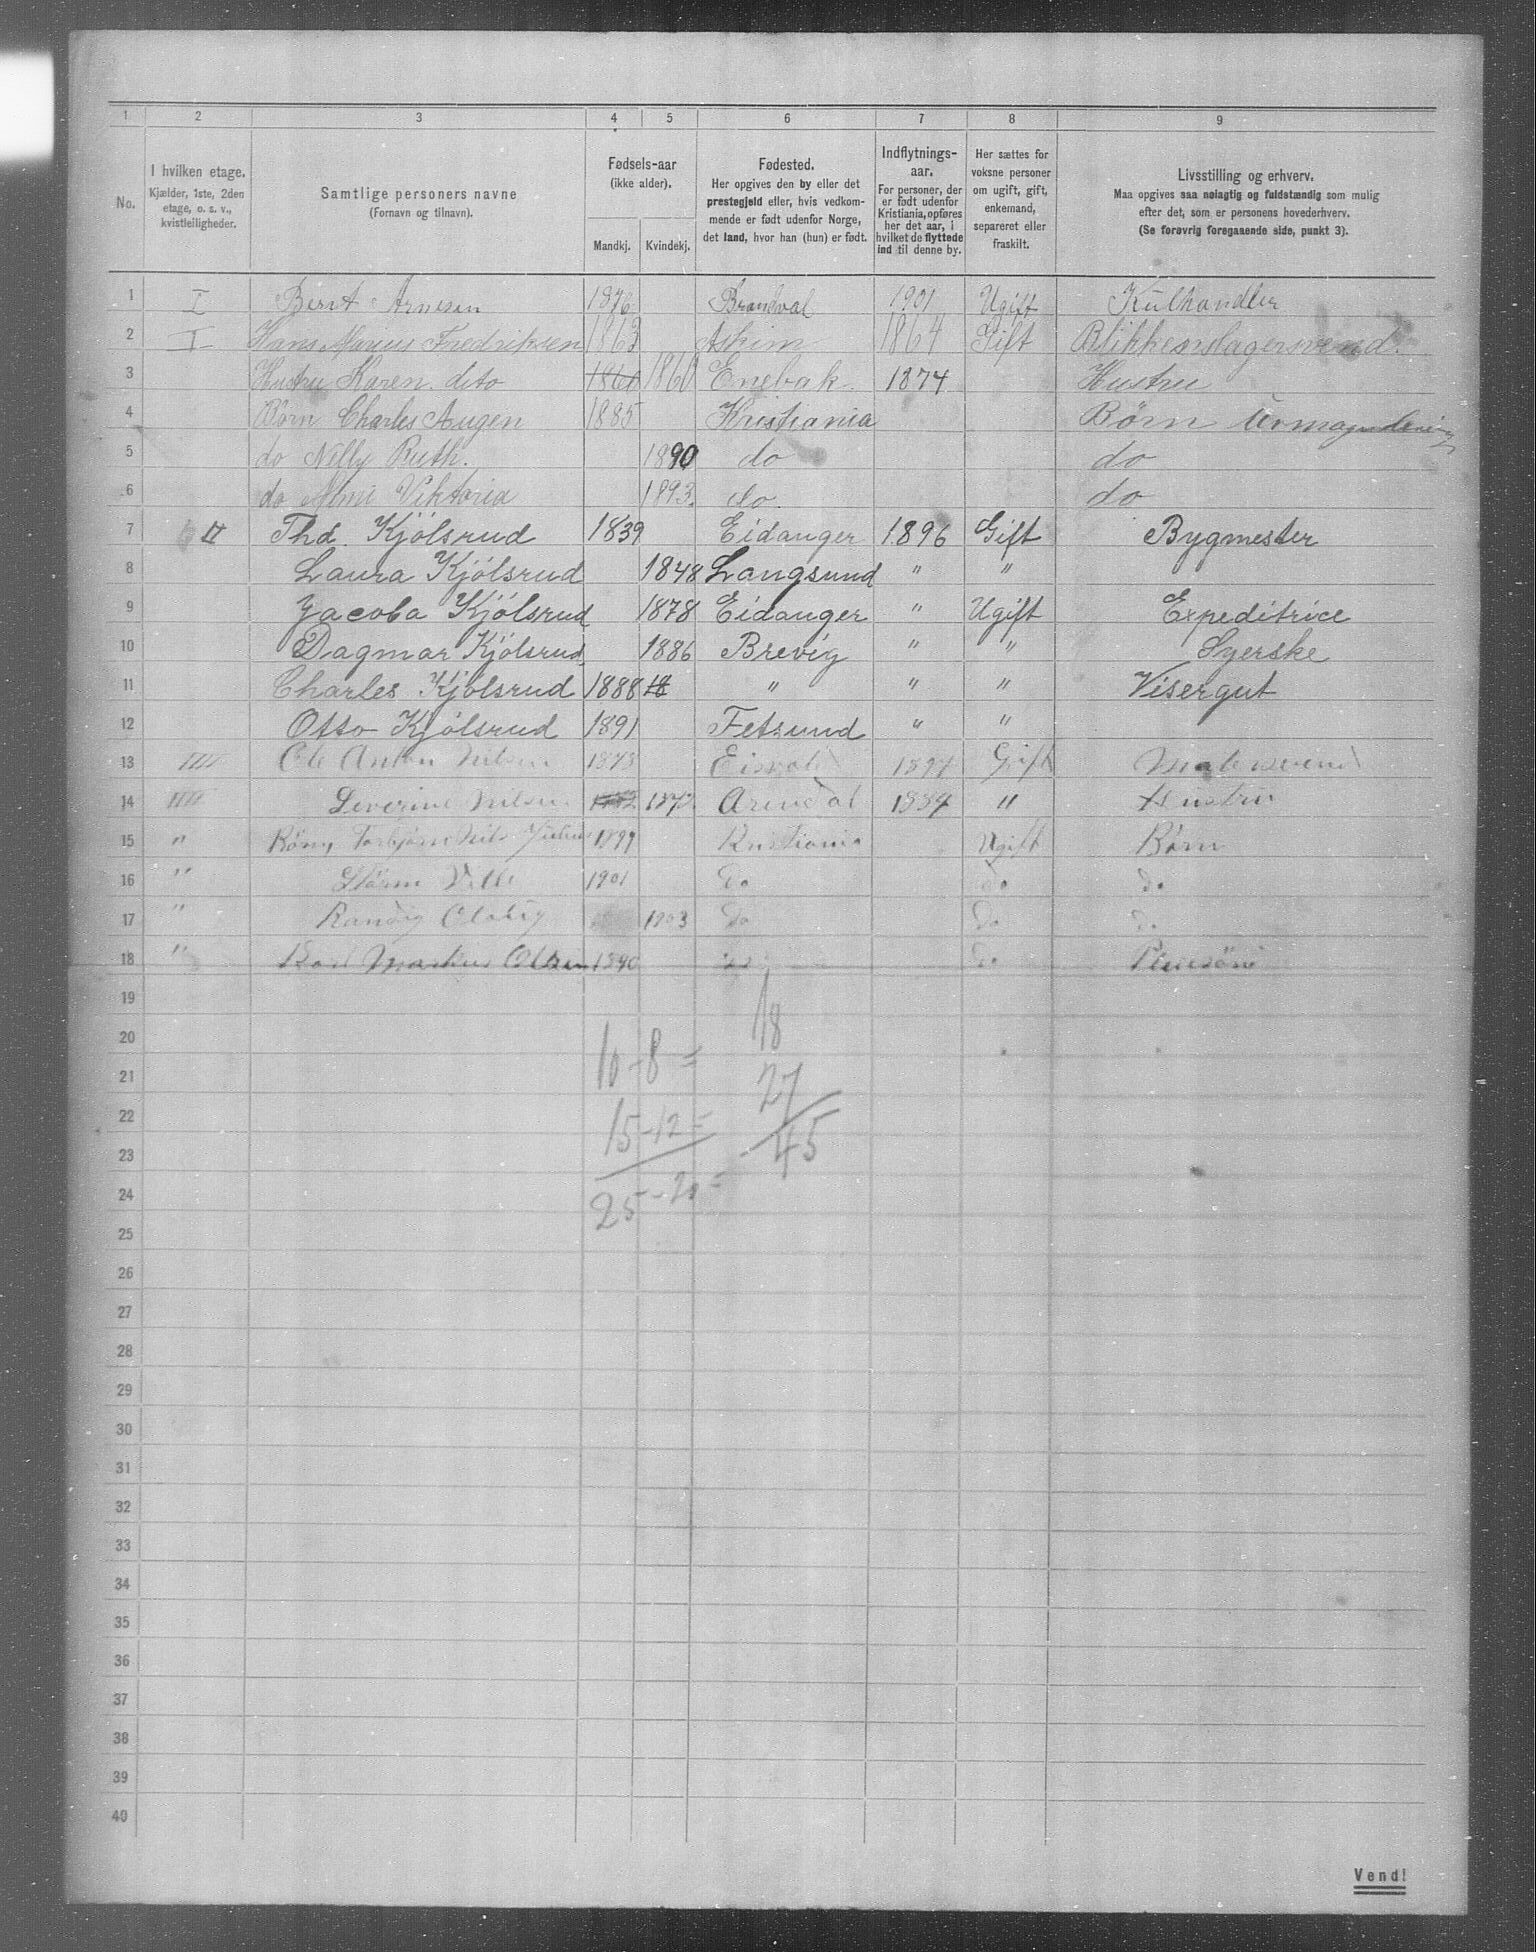 1 2 3 4 5 6 7 8 9
No.
I hvilken etage.
Kjælder, 1ste, 2den
etage, o. s. v.,
kvistleiligheder.
Samtlige personers navne
(Fornavn og tilnavn).
Fødsels-aar
(ikke alder).
Mandkj. Kvindekj.
Fødested.
Her opgives den by eller det
prestegjeld eller, hvis vedkom-
mende er født udenfor Norge,
det land, hvor han (hun) er født.
Indflytnings-
aar.
For personer, der
er født udenfor
Kristiania, opføres
her det aar, i
hvilket de flyttede
ind til denne by.
Her sættes for
voksne personer
om ugift, gift,
enkemand,
separeret eller
fraskilt.
Livsstilling og erhverv.
Maa opgives saa nøiagtig og fuldstændig som mulig
efter det, som er personens hovederhverv.
(Se forøvrig foregaaende side, punkt 3).
1 I Bernt Arnesen 1876 Brandval 1901 Ugift Kulhandler
2 I Hans Marius Fredriksen 1863 Askim 1864 Gift Blikkenslagersvend.
3 Hustru Karen. dito 1860 1860 Enebak. 1874 Hustru
4 Børn Charles Augen 1885 Kristiania Børn
5 do Nelly Ruth. 1890 do do
6 do Almi Viktoria 1893. do. do
7 II Thd. Kjølsrud 1839 Eidanger 1896 Gift Bygmester
8 Laura Kjølsrud 1848 Langsund " "
9 Jacoba Kjølsrud 1878 Eidanger " Ugift Expeditrice
10 Dagmar Kjølsrud 1886 Brevig " " Syerske
11 Charles Kjølsrud 1888 18 " " " Visergut
12 Otto Kjølsrud 1891 Fetsund " "
13 IIII Ole Anton Nilsen 1873 Eisvold 1891 Gift Malersvend
14 IIII Severine Nilsen 1872 Arendal 1884 " Hustru
15 " Børn, Torbjørn Nils Julius 1899 Kristiania Ugift Børn
16 " 1901 do do do
17 " Randig 1903 do do do
18 " Karl Markus Olsen 1840 do do
19
20
21
22
23
24
25
26
27
28
29
30
31
32
33
34
35
36
37
38
39
40
10 - 8 = 18
15 - 12 = 27
25 - 20 = 45
Vend!